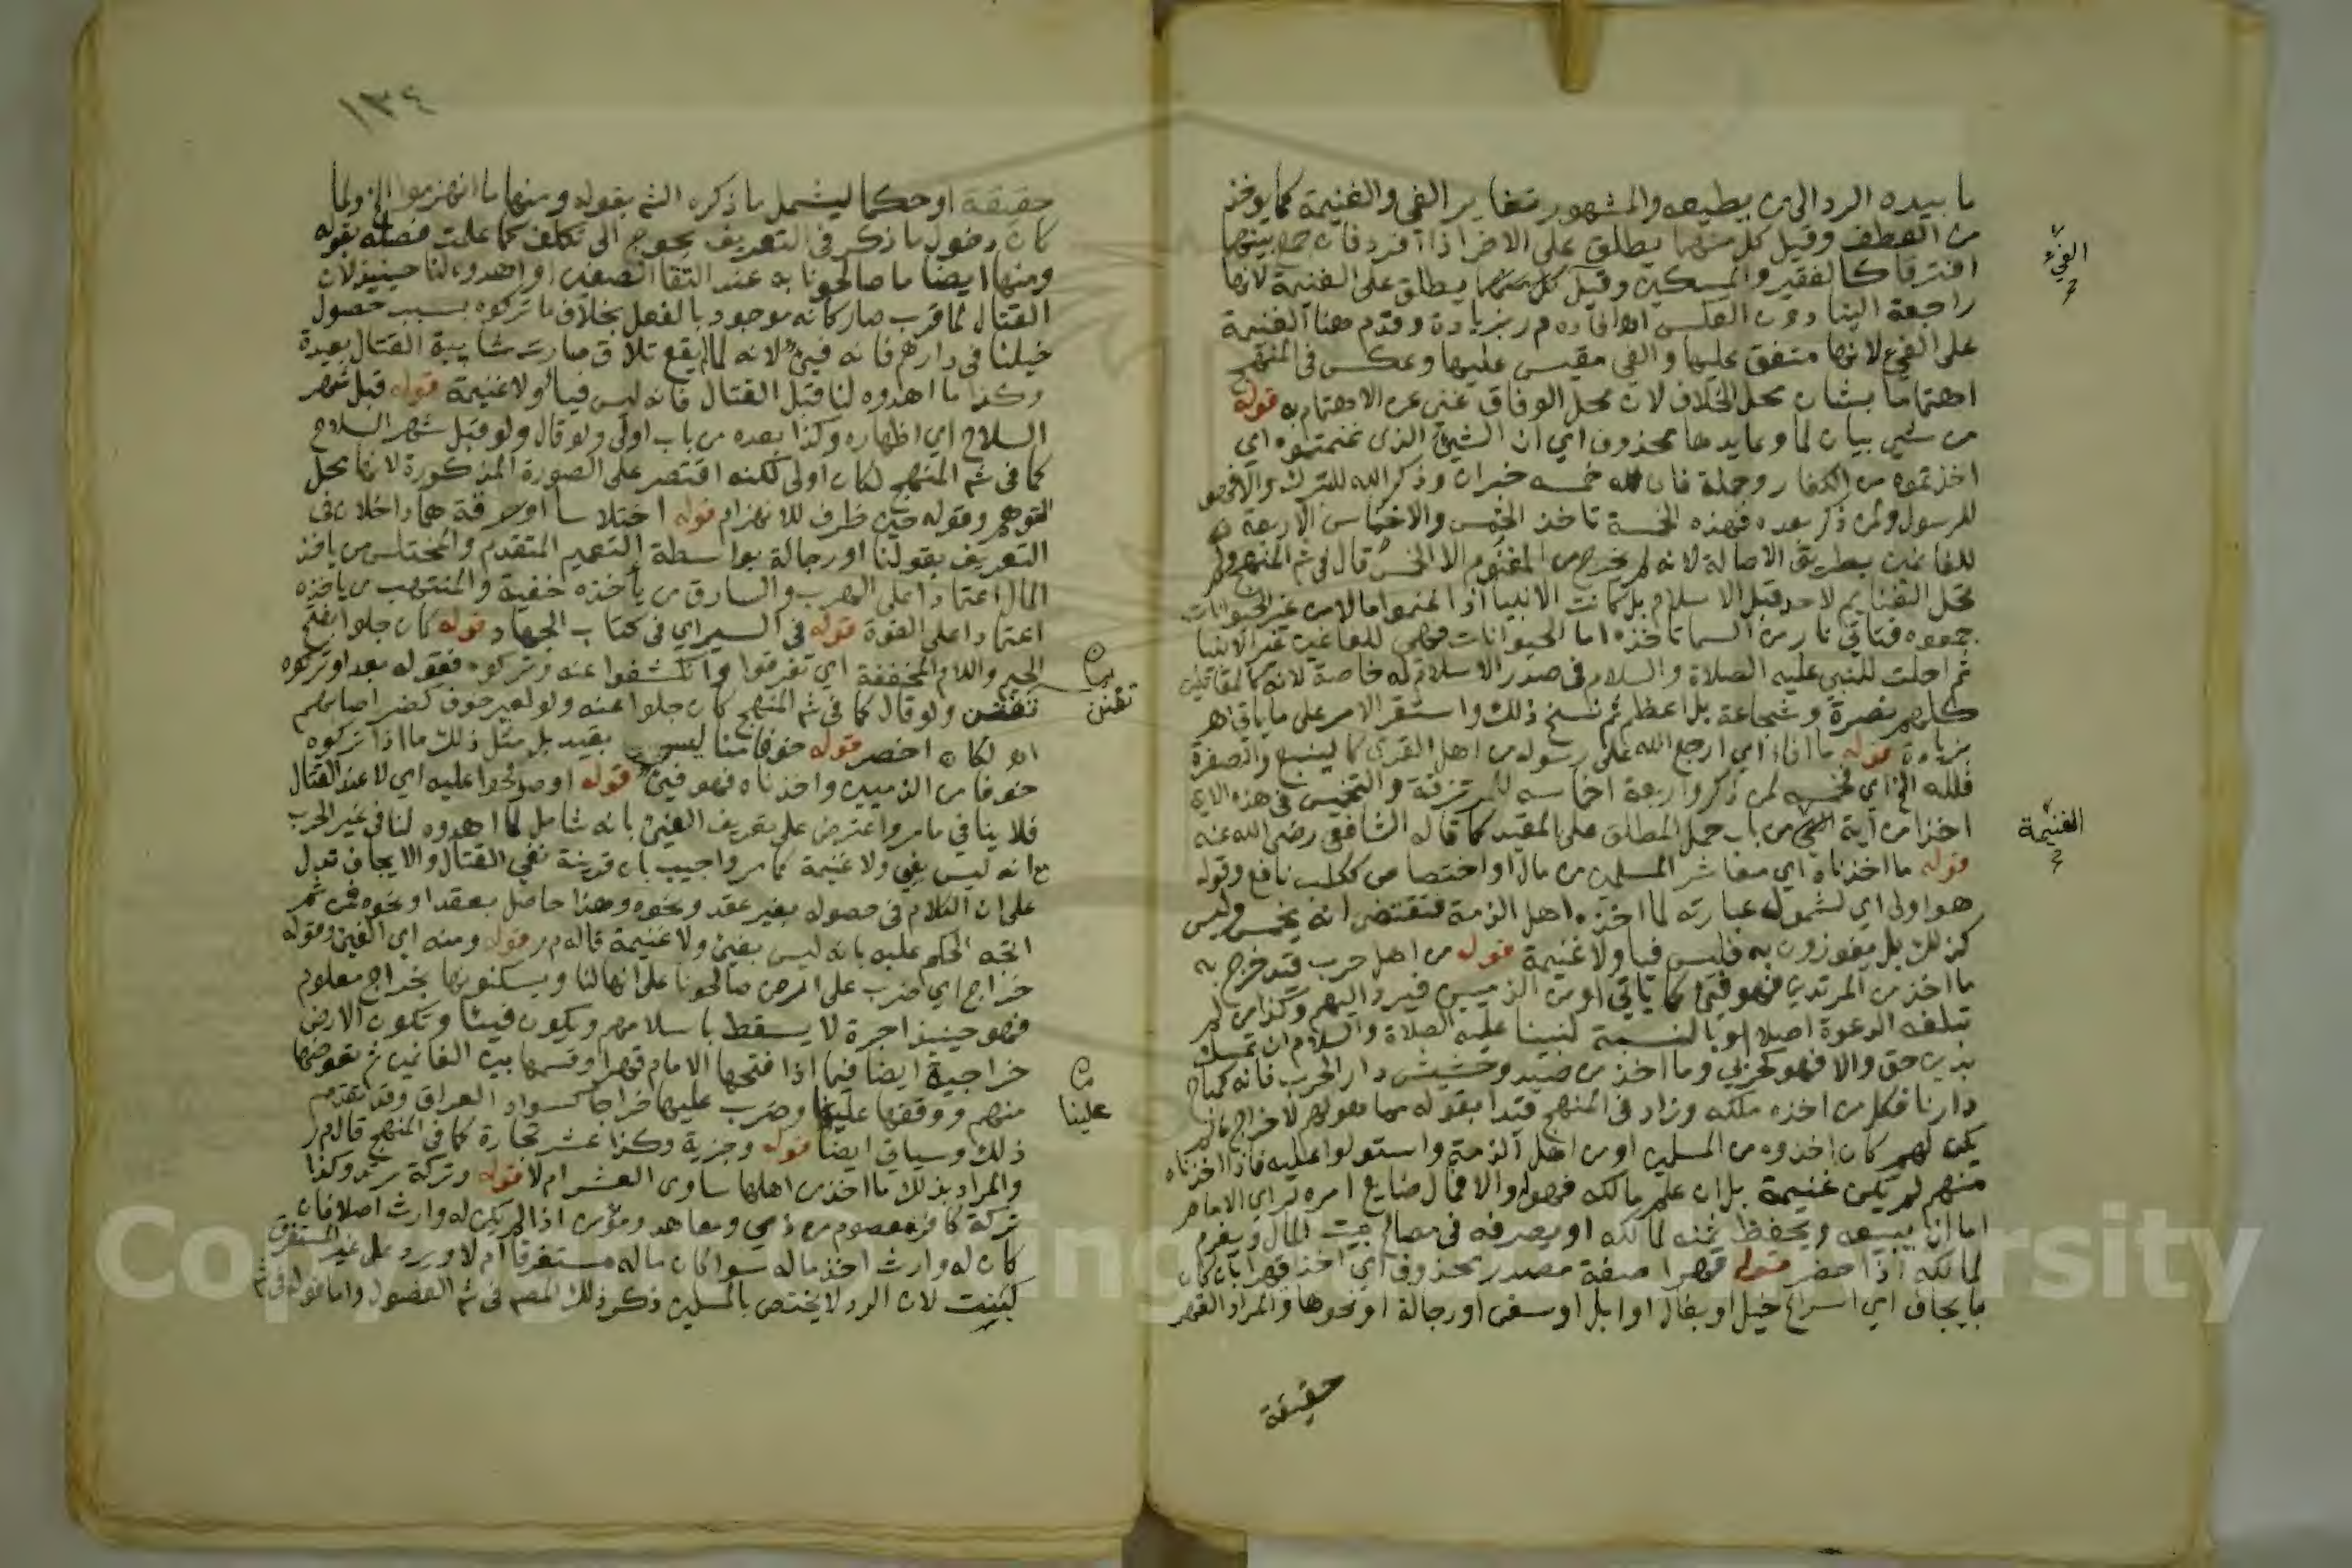 ما بيده الرد الى من يطيعه والمشهور تغاير الفى والغنيمة كما يوخذ
من العطف وقيل كل منهما يطلق على الاخر اذا افرد فان جمع بينهما
افترقا كالفقير والمسكين وقيل كل منهما يطلق على الغنيمة لانها
راجعة الينا دون العكس اه افاده م ر بزيادة وقدم هنا الغنيمة
على الفيء لانها متفق عليها والفى مقيس عليها وعكس فى المنهج
اهتماما بشان محل الخلاف لان محل الوفاق غنى عن الاهتمام به قوله
من شى بيان لما وعايدها محذوف اي ان الشيء الذى غنمتموه اي
اخذتموه من الكفار وجملة فان لله خمسه خبران وذكر الله للتبرك والا فهو
للرسول ولمن ذكر بعده فهذه الخمسة تاخذ الخمس والاخماس الاربعة
للغانمين بطريق الاصالة لانه لم يخرج من المغنوم الا الخمس قال فى شم المنهج ولم
تحل الغنايم لاحد قبل الاسلام بل كانت الانبيا اذا غنموا مالا من غير الحيوانات
جمعوه فتاتي نار من السما تاخذه اما الحيوانات فهى للغانمين غير الانبيا
ثم احلت للنبي عليه الصلاة والسلام فى صدر الاسلام له خاصة لانه كالمقاتلين
كلهم نصرة وشجاعة بل اعظم ثم نسخ ذلك واستقر الامر على ما ياتي اه
بزيادة قوله ما افاء اي ارجع الله على رسوله من اهل القرى كالينبع والصفرة
فلله الخ اي فخمسه لمن ذكر واربعة اخماسه للمرتزقة والتخميس فى هذه الاية
اخذا من آية الغنيمة من باب حمل المطلق على المقيد كما قاله الشافعى رضى الله عنه
قوله ما اخذناه اي معاشر المسلمين من مال او اختصاص ككلب نافع وقوله
هو اولى اي لشموله عبارته لما اخذه اهل الذمة فتقتضى انه يخمس وليس
كذلك بل يفوزون به فليس فيا ولا غنيمة قوله من اهل حرب قيد خرج به
ما اخذ من المرتدين فهو فيء كما ياتي او من الذميين فيرد اليهم وكذا من لم
تبلغه الدعوة اصلا او بالنسبة لنبينا عليه الصلاة والسلام ان تمسك
بدين حق والا فهو كحربي وما اخذ من صيد وحشيش دار الحرب فانه كمباح
دارنا فكل من اخذه ملكه وزاد فى المنهج قيدا بقوله مما هو لهم لاخراج ما لم
يكن لهم كان اخذوه من المسلمين او من اهل الذمة واستولوا عليه فاذا اخذناه
منهم لم يكن غنيمة بل ان علم مالكه فهو له والا فمال ضايع امره لراى الامام
اما ان يبيعه ويحفظ ثمنه لمالكه او يصرفه فى مصالح بيت المال ويغرم
لمالكه اذا حضر قوله قهرا صفة مصدر محذوف اي اخذ قهرا بان كان
بايجاف اي اسراع خيل او بغال او ابل او سفن او رجالة او نحوها والمراد القهر
حقيقة
الفيء
الغنيمة
١٣٤
حقيقة او حكما ليشمل ما ذكره الشم بقوله ومنها ما انهزموا الخ ولما
كان دخول ما ذكر فى التعريف يحوج الى تكلف كما علمت فصله بقوله
ومنها ايضا ما صالحونا به عند التقا الصفين او اهدوه لنا حينيذ لان
القتال لما قرب صار كانه موجود بالفعل بخلاف ما تركوه بسبب حصول
خيلنا فى دارهم فانه فيء لانه لما لم يقع تلاق صارت شايبة القتال بعيدة
وكذا ما اهدوه لنا قبل القتال فانه ليس فيا ولا غنيمة قوله قبل شهر
السلاح اي اظهاره وكذا بعده من باب اولى ولو قال ولو قبل شهر السلاح
كما فى شم المنهج لكان اولى لكنه اقتصر على الصورة المذكورة لانها محل
التوهم وقوله حين ظرف للانهزام قوله اختلاسا او سرقة هما داخلان فى
التعريف بقولنا او رجالة بواسطة التعميم المتقدم والمختلس من ياخذ
المال اعتمادا على الهرب والسارق من ياخذه خفية والمنتهب من ياخذه
اعتمادا على القوة قوله فى السير اي فى كتاب الجهاد قوله كان جلوا بفتح
الجيم واللام المخففة اي تفرقوا وانكشفوا عنه وتركوه فقوله بعد او تركوه
تفنن ولو قال كما فى شم المنهج كان جلوا عنه ولو لغير خوف كضر اصابهم
اه لكان اخصر قوله خوفا منا ليس بقيد بل مثل ذلك ما اذا تركوه
خوفا من الذميين واخذناه فهو فيء قوله او صولحوا عليه اي لا عند القتال
فلا ينافي ما مر واعترض على تعريف الفيء بانه شامل لما اهدوه لنا فى غير الحرب
مع انه ليس بفى ولا غنيمة كما مر واجيب بان قرينة نفى القتال والايجاف تدل
على ان الكلام فى حصوله بغير عقد ونحوه وهذا حاصل بعقد او نحوه فمن ثم
اتجه الحكم عليه بانه ليس بفيء ولا غنيمة قاله م ر قوله ومنه اي الفيء وقوله
خراج اي ضرب على ارض صالحونا على انها لنا ويسكنونها بخراج معلوم
فهو حينيذ اجرة لا يسقط باسلامهم ويكون فيئا وتكون الارض
خراجية ايضا فيما اذا فتحها الامام قهرا وقسمها بين الغانمين ثم تعوضها
منهم ووقفها علينا وضرب عليها خراجا كسواد العراق وقد تقدم
ذلك وسياتي ايضا قوله وجزية وكذا عشر تجارة كما فى المنهج قال م ر
والمراد بذلك ما اخذ من اهلها ساوى العشر ام لا قوله وتركة مرتد وكذا
تركة كافر معصوم من ذمي ومعاهد ومؤمن اذا لم يكن له وارث اصلا فان
كان له وارث اخذ ماله سوا كان ماله مستغرقا ام لا ويرد على غير المستغرق
كبنت لان الرد لا يختص بالمسلمين ذكر ذلك المصم فى شم الفصول واما قوله فى شم
تفنن
علينا